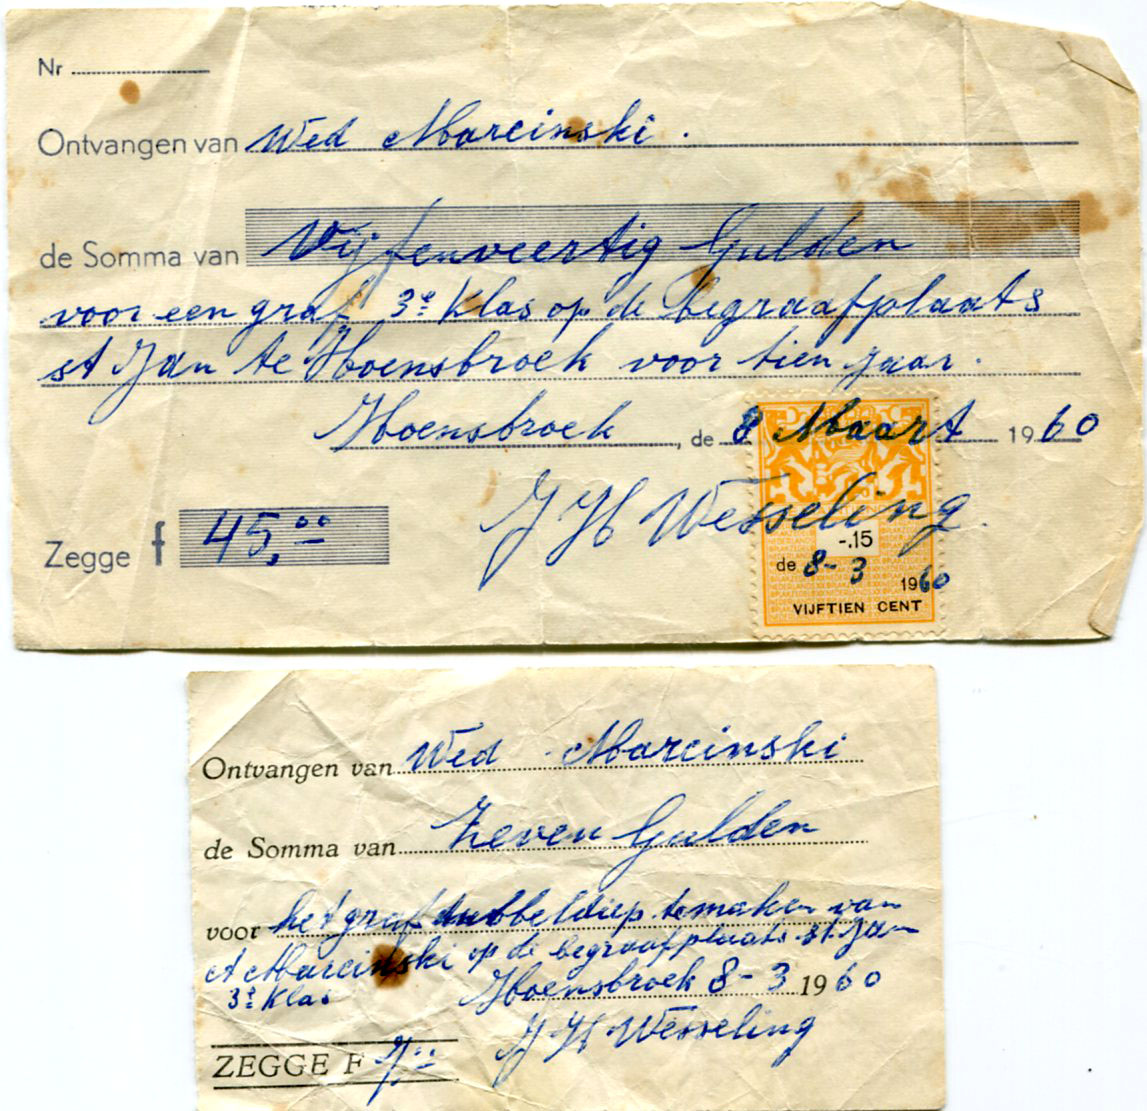 Nr
Ontvangen van Wed Marcinski.
de Somma van Vijfenveertig Gulden
voor een graf 3e Klas op de begraafplaats
st Jan te Hoensbroek voor tien jaar.
Hoensbroek, de 8 Maart 1960
J H Wesseling
Zegge f 45,00
-.15
de 8-3 1960
VIJFTIEN CENT
Ontvangen van Wed Marcinski
de Somma van Zeven Gulden
voor het graf dubbeldiep te maken van
A Marcinski op de begraafplaats st. Jan
3e Klas Hoensbroek 8-3 1960
J H Wesseling
ZEGGE F 7,00